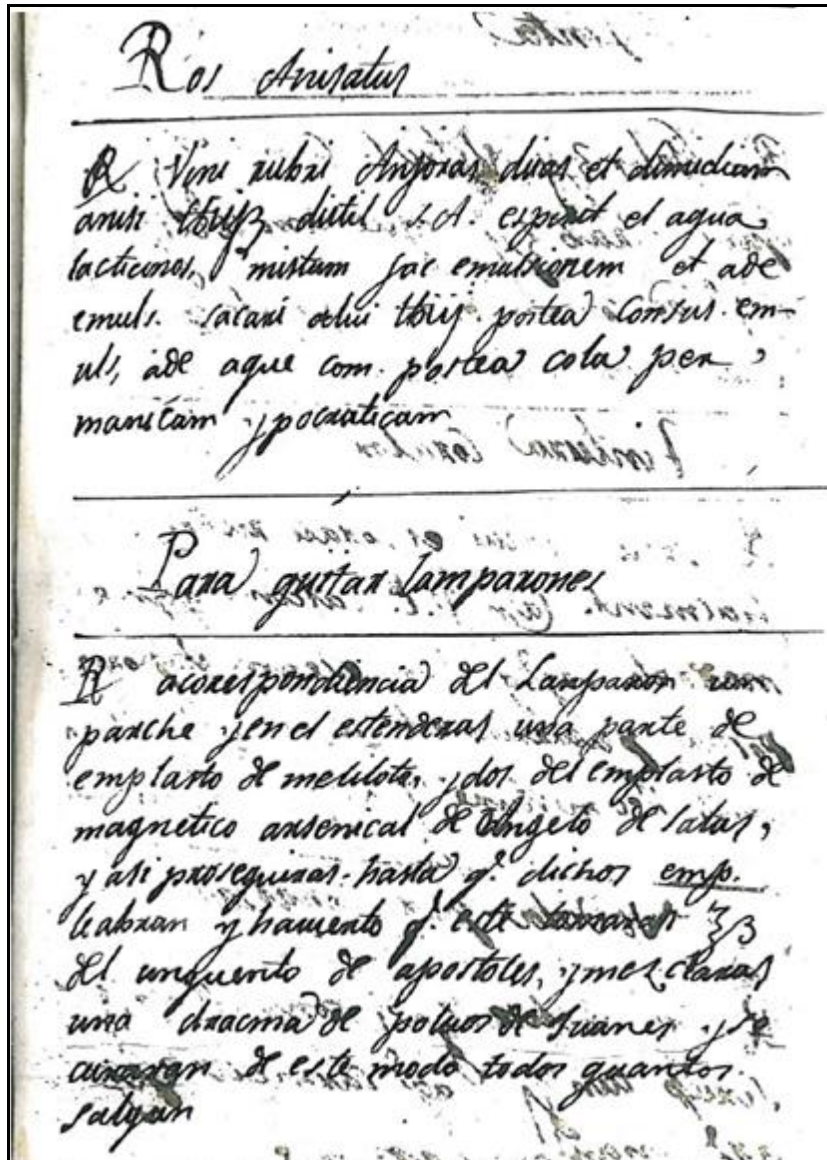 Ros Anisatus
R Vini rubri Anforas duas et dimidiam
anisi distil. s.A. espirit et agua
lacticinos, mistum fac emulsionem et ade
emuls. sacari albi lbij postea Consus em-
uls, ade aque com. postea cola per
manicam ypocraticam
Para quitar Lamparones
R acorespondiencia del Lamparon un
parche y en el estenderas una parte de
emplasto de meliloto, y dos del emplasto de
magnetico arsenical de Angelo de Salas,
y asi proseguiras hasta q.e dichos emp.
leabran y haviento q.e este tomaras ℥β
del unguento de apostoles, y mezclaras
una dracma de polvos de Juanes y se
curaran de este modo todos quantos
salgan